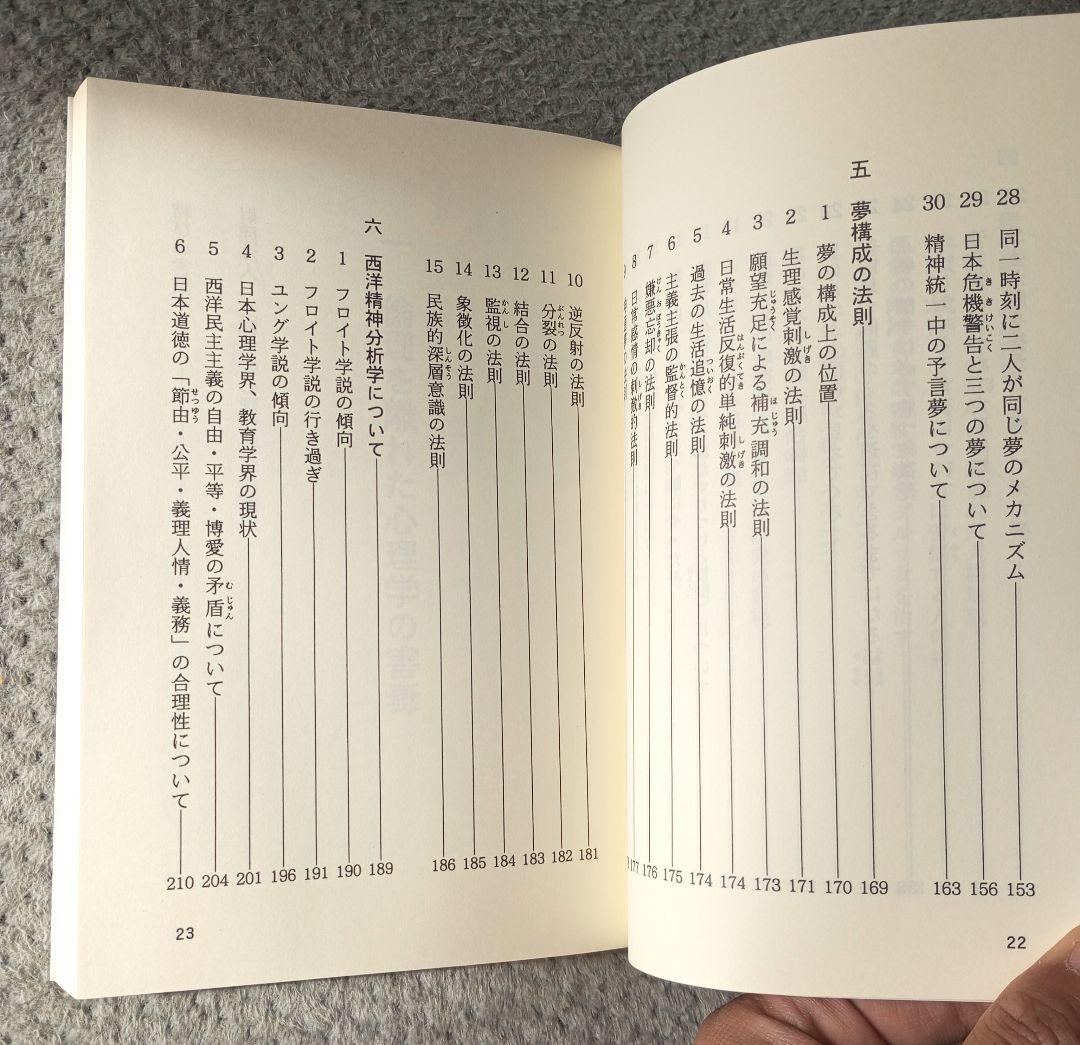 28 同一時刻に二人が同じ夢のメカニズム 153
29 日本危機警告と三つの夢について 156
30 精神統一中の予言夢について 163
五 夢構成の法則 169
1 夢の構成上の位置 170
2 生理感覚刺激の法則 171
3 願望充足による補充調和の法則 173
4 日常生活反復的単純刺激の法則 174
5 過去の生活追憶の法則 174
6 主義主張の監督的法則 175
7 嫌悪忘却の法則 176
8 日常感情の刺激的法則 177
22
10 逆反射の法則 181
11 分裂の法則 182
12 結合の法則 183
13 監視の法則 184
14 象徴化の法則 185
15 民族的深層意識の法則 186
六 西洋精神分析学について 189
1 フロイト学説の傾向 190
2 フロイト学説の行き過ぎ 191
3 ユング学説の傾向 196
4 日本心理学界、教育学界の現状 201
5 西洋民主主義の自由・平等・博愛の矛盾について 204
6 日本道徳の「節由・公平・義理人情・義務」の合理性について 210
23